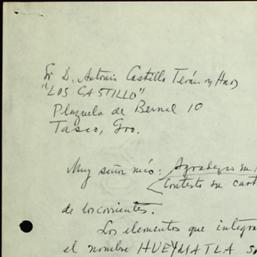 Sr D. Antonio Castillo Terán y Hnos
"LOS CASTILLO"
Plazuela de Bernal 10
Taxco, Gro.
Muy señor mío: Agradezco su
Contesto su cart
de los corrientes.
Los elementos que integra
el nombre HUEYMATLA so